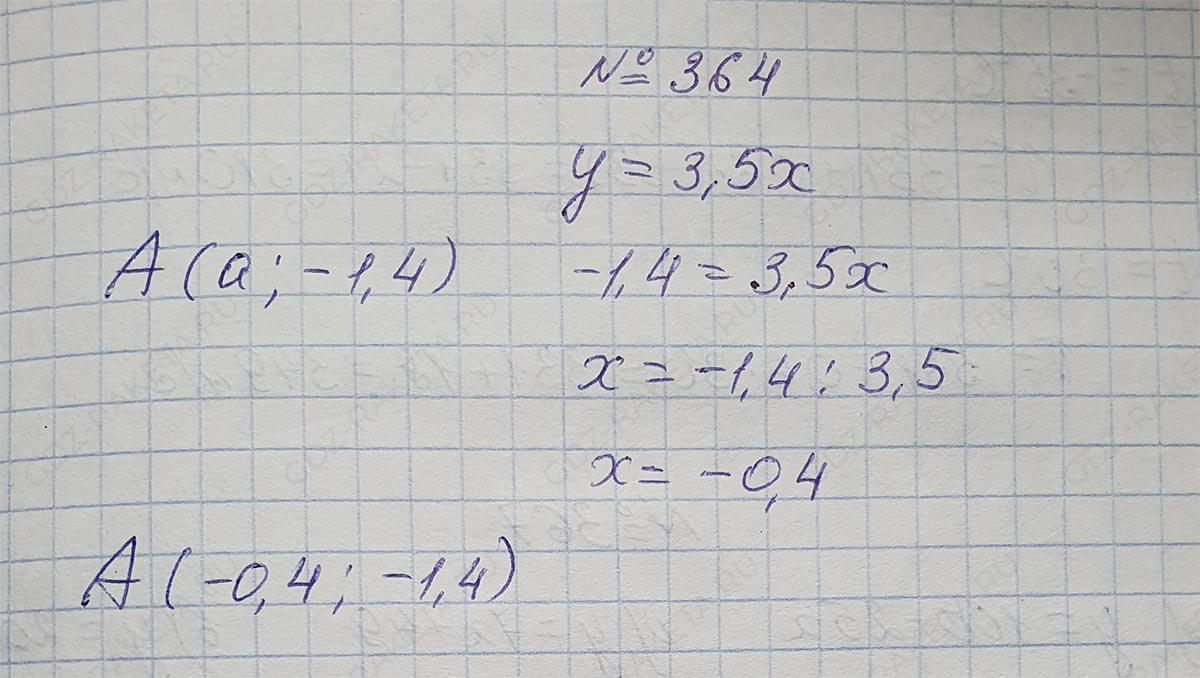 № 364
y = 3,5x
A(a; -1,4) -1,4 = 3,5x
x = -1,4 : 3,5
x = -0,4
A(-0,4; -1,4)